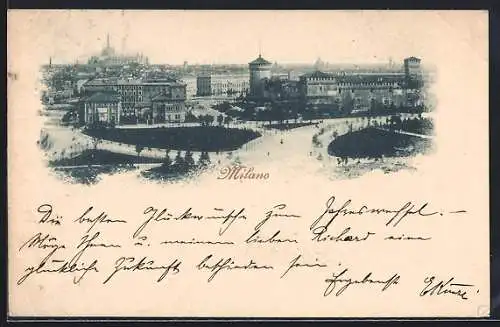 Milano
Die besten Glückwünsche zum Jahreswechsel. —
Möge Ihnen u. meinem lieben Richard eine
glückliche Zukunft beschieden sein.
Ergebenst